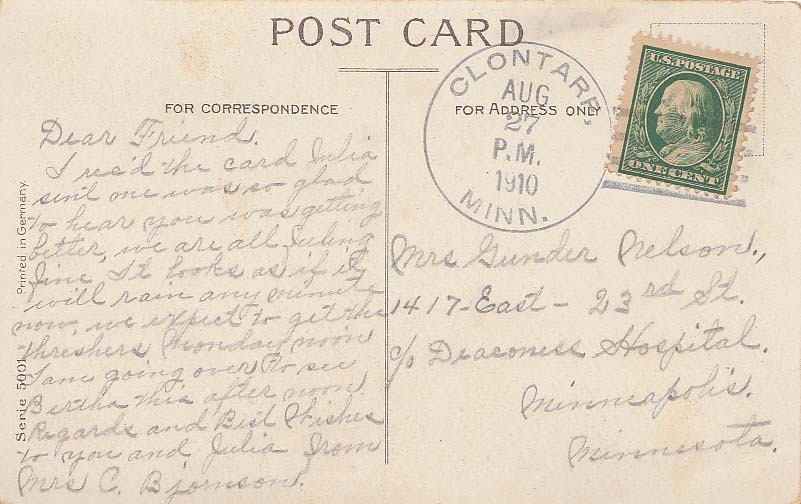 POST CARD
FOR CORRESPONDENCE
FOR ADDRESS ONLY
CLONTARF,
AUG
27
P.M.
1910
MINN.
U.S. POSTAGE
ONE CENT
Dear Friend.
I rec'd the card Julia
sent one was so glad
to hear you was getting
better, we are all feeling
fine. It looks as if it
will rain any minute
now, we expect to get the
threshers Monday noon
I am going over to see
Bertha this after noon
Regards and Best Wishes
to you and Julia from
Mrs C. Bjornson.
Mrs Gunder Nelson.,
1417-East-23rd St.
c/o Deaconess Hospital.
Minneapolis.
Minnesota.
Printed in Germany.
Serie 5001